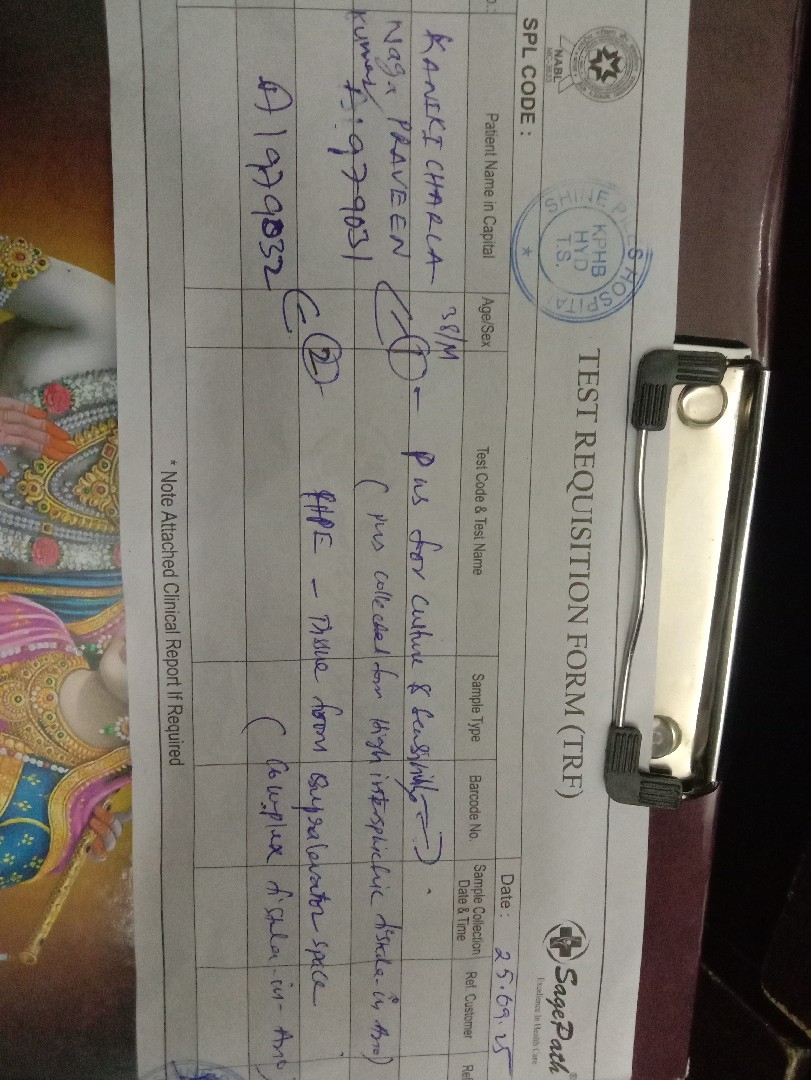 NABL
SHINE PILES HOSPITAL
KPHB
HYD
T.S.
TEST REQUISITION FORM (TRF)
SagePath
Excellence In Health Care
SPL CODE :
Date : 25.09.25
Patient Name in Capital
Age/Sex
Test Code & Test Name
Sample Type
Barcode No.
Sample Collection Date & Time
Ref. Customer
Ref
KANIKICHARLA 38/M
Naga PRAVEEN
Kumar
① - Pus for culture & Sensitivity
A1979031
(pus collected from High intersphincteric fistula-in Ano)
② HPE - Tissue from Supralevator space
A1979032
(Complex fistula-in-Ano)
* Note Attached Clinical Report If Required